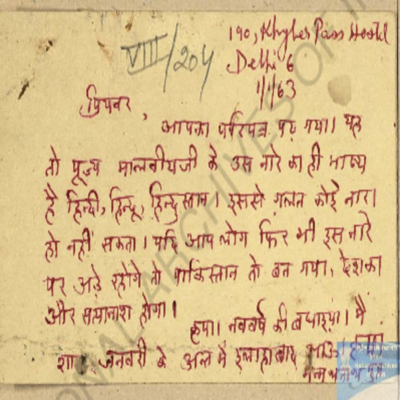 190, Khyber Pass Hostel
VIII/204
Delhi 6
1/1/63
प्रियवर,
आपका परिपत्र पढ़ गया। यह
तो पूज्य मालवीयजी के उस नारे का ही भाष्य
है हिन्दी, हिन्दू, हिन्दुस्तान। इससे गलत कोई नारा
हो नहीं सकता। यदि आप लोग फिर भी इस नारे
पर अड़े रहोगे तो पाकिस्तान तो बन गया, देश का
और सत्यानाश होगा।
कृपा। नववर्ष की बधाइयां। मैं
शा जनवरी के अन्त में इलाहाबाद